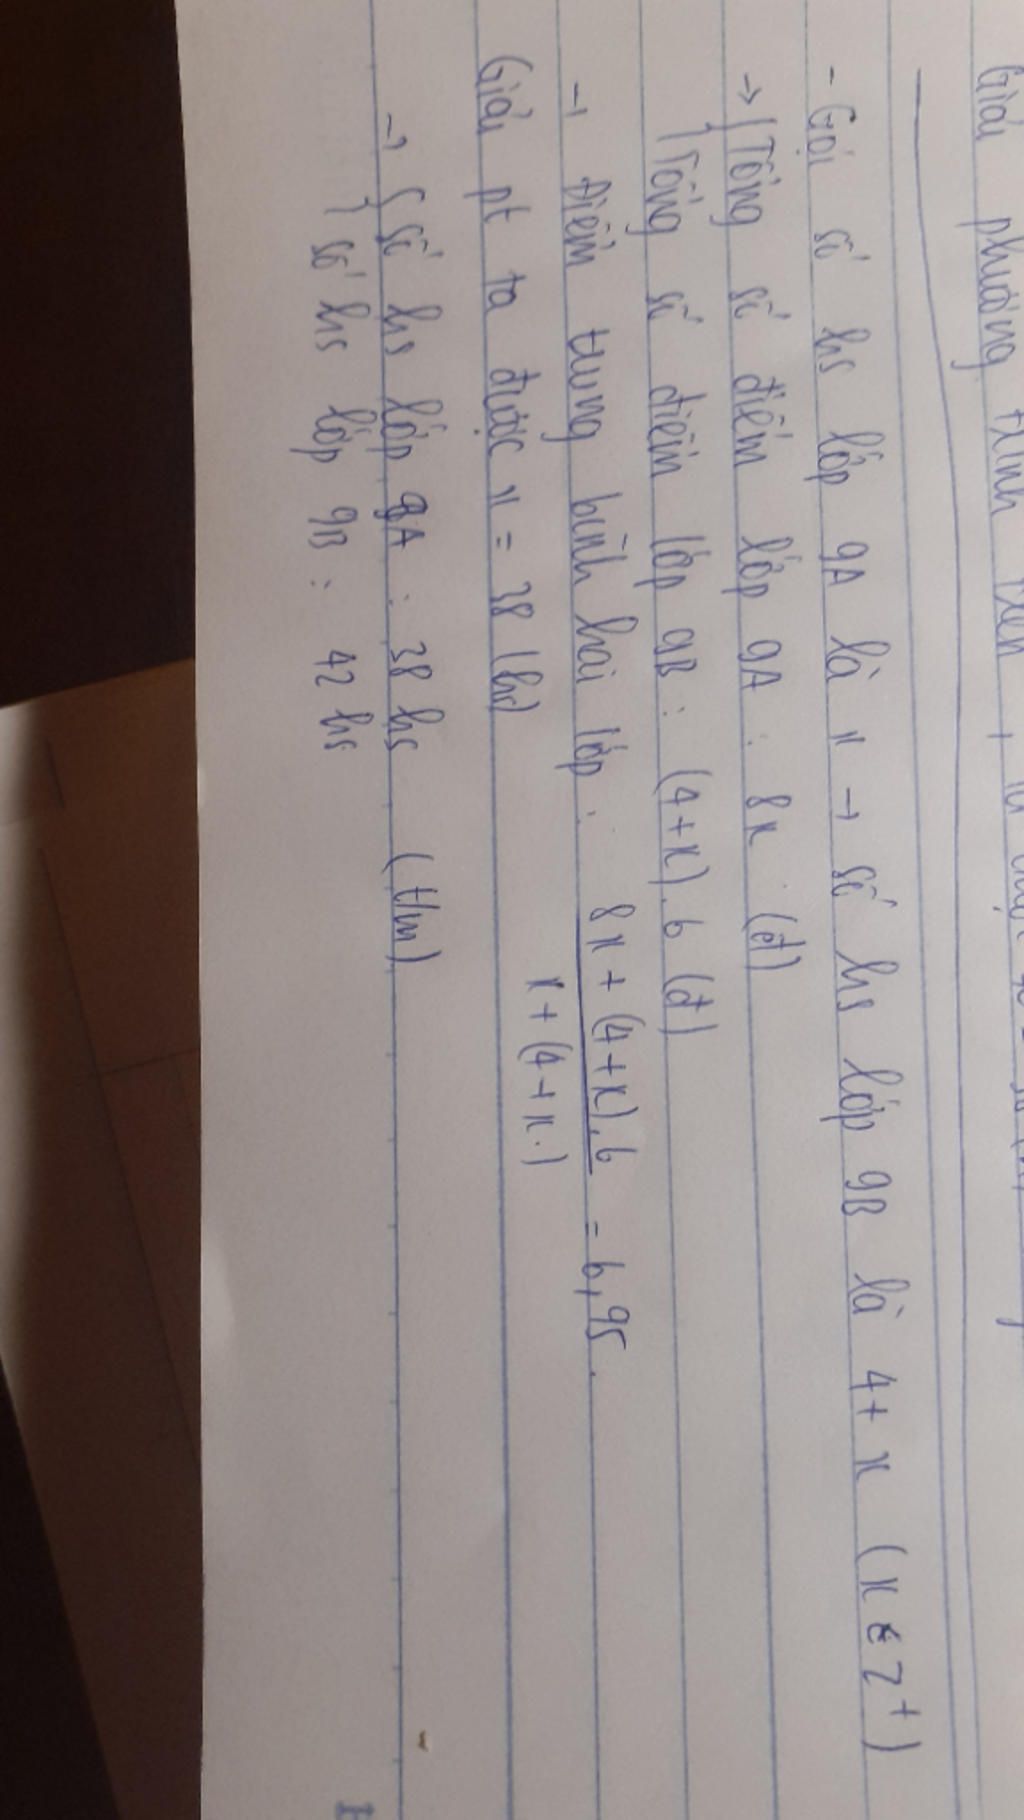 Giải phương trình trên, ta được
- Gọi số hs lớp 9A là x → số hs lớp 9B là 4 + x (x ∈ Z⁺)
→ { Tổng số điểm lớp 9A : 8x (đ)
{ Tổng số điểm lớp 9B : (4+x).6 (đ)
→ Điểm trung bình hai lớp : 8x + (4+x).6 / x + (4+x) = 6,95.
Giải pt ta được x = 38 (hs)
→ { số hs lớp 9A : 38 hs (t/m)
} số hs lớp 9B : 42 hs